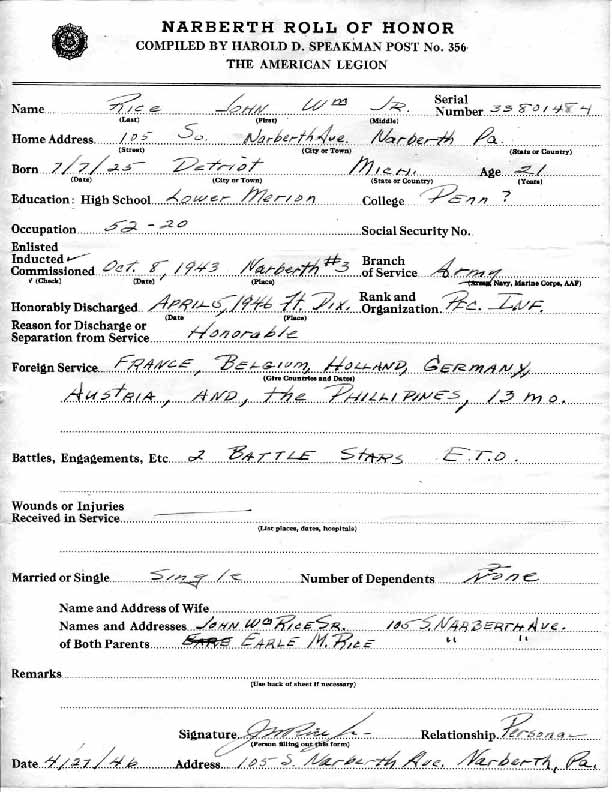 NARBERTH ROLL OF HONOR
COMPILED BY HAROLD D. SPEAKMAN POST No. 356
THE AMERICAN LEGION
Name Rice John Wm Jr. Serial Number 33801484
(Last) (First) (Middle)
Home Address 105 So. Narberth Ave. Narberth Pa.
(Street) (City or Town) (State or Country)
Born 7/7/25 Detriot Mich. Age 21
(Date) (City or Town) (State or Country) (Years)
Education: High School Lower Merion College Penn ?
Occupation 52-20 Social Security No.
Enlisted
Inducted ✓ Branch
Commissioned Oct. 8, 1943 Narberth #3 of Service Army
√ (Check) (Date) (Place) (Army, Navy, Marine Corps, AAF)
Honorably Discharged April 5, 1946 Ft. Dix. Rank and Organization Pfc. Inf.
(Date (Place)
Reason for Discharge or
Separation from Service Honorable
Foreign Service France, Belgium, Holland, Germany,
(Give Countries and Dates)
Austria, and, the Phillipines, 13 mo.
Battles, Engagements, Etc. 2 Battle Stars E.T.O.
Wounds or Injuries
Received in Service
(List places, dates, hospitals)
Married or Single Single Number of Dependents None
Name and Address of Wife
Names and Addresses John Wm Rice Sr. 105 S. Narberth Ave.
of Both Parents Earle M. Rice " "
Remarks
(Use back of sheet if necessary)
Signature Relationship Personal
(Person filling out this form)
Date 4/27/46 Address 105 S. Narberth Ave. Narberth, Pa.